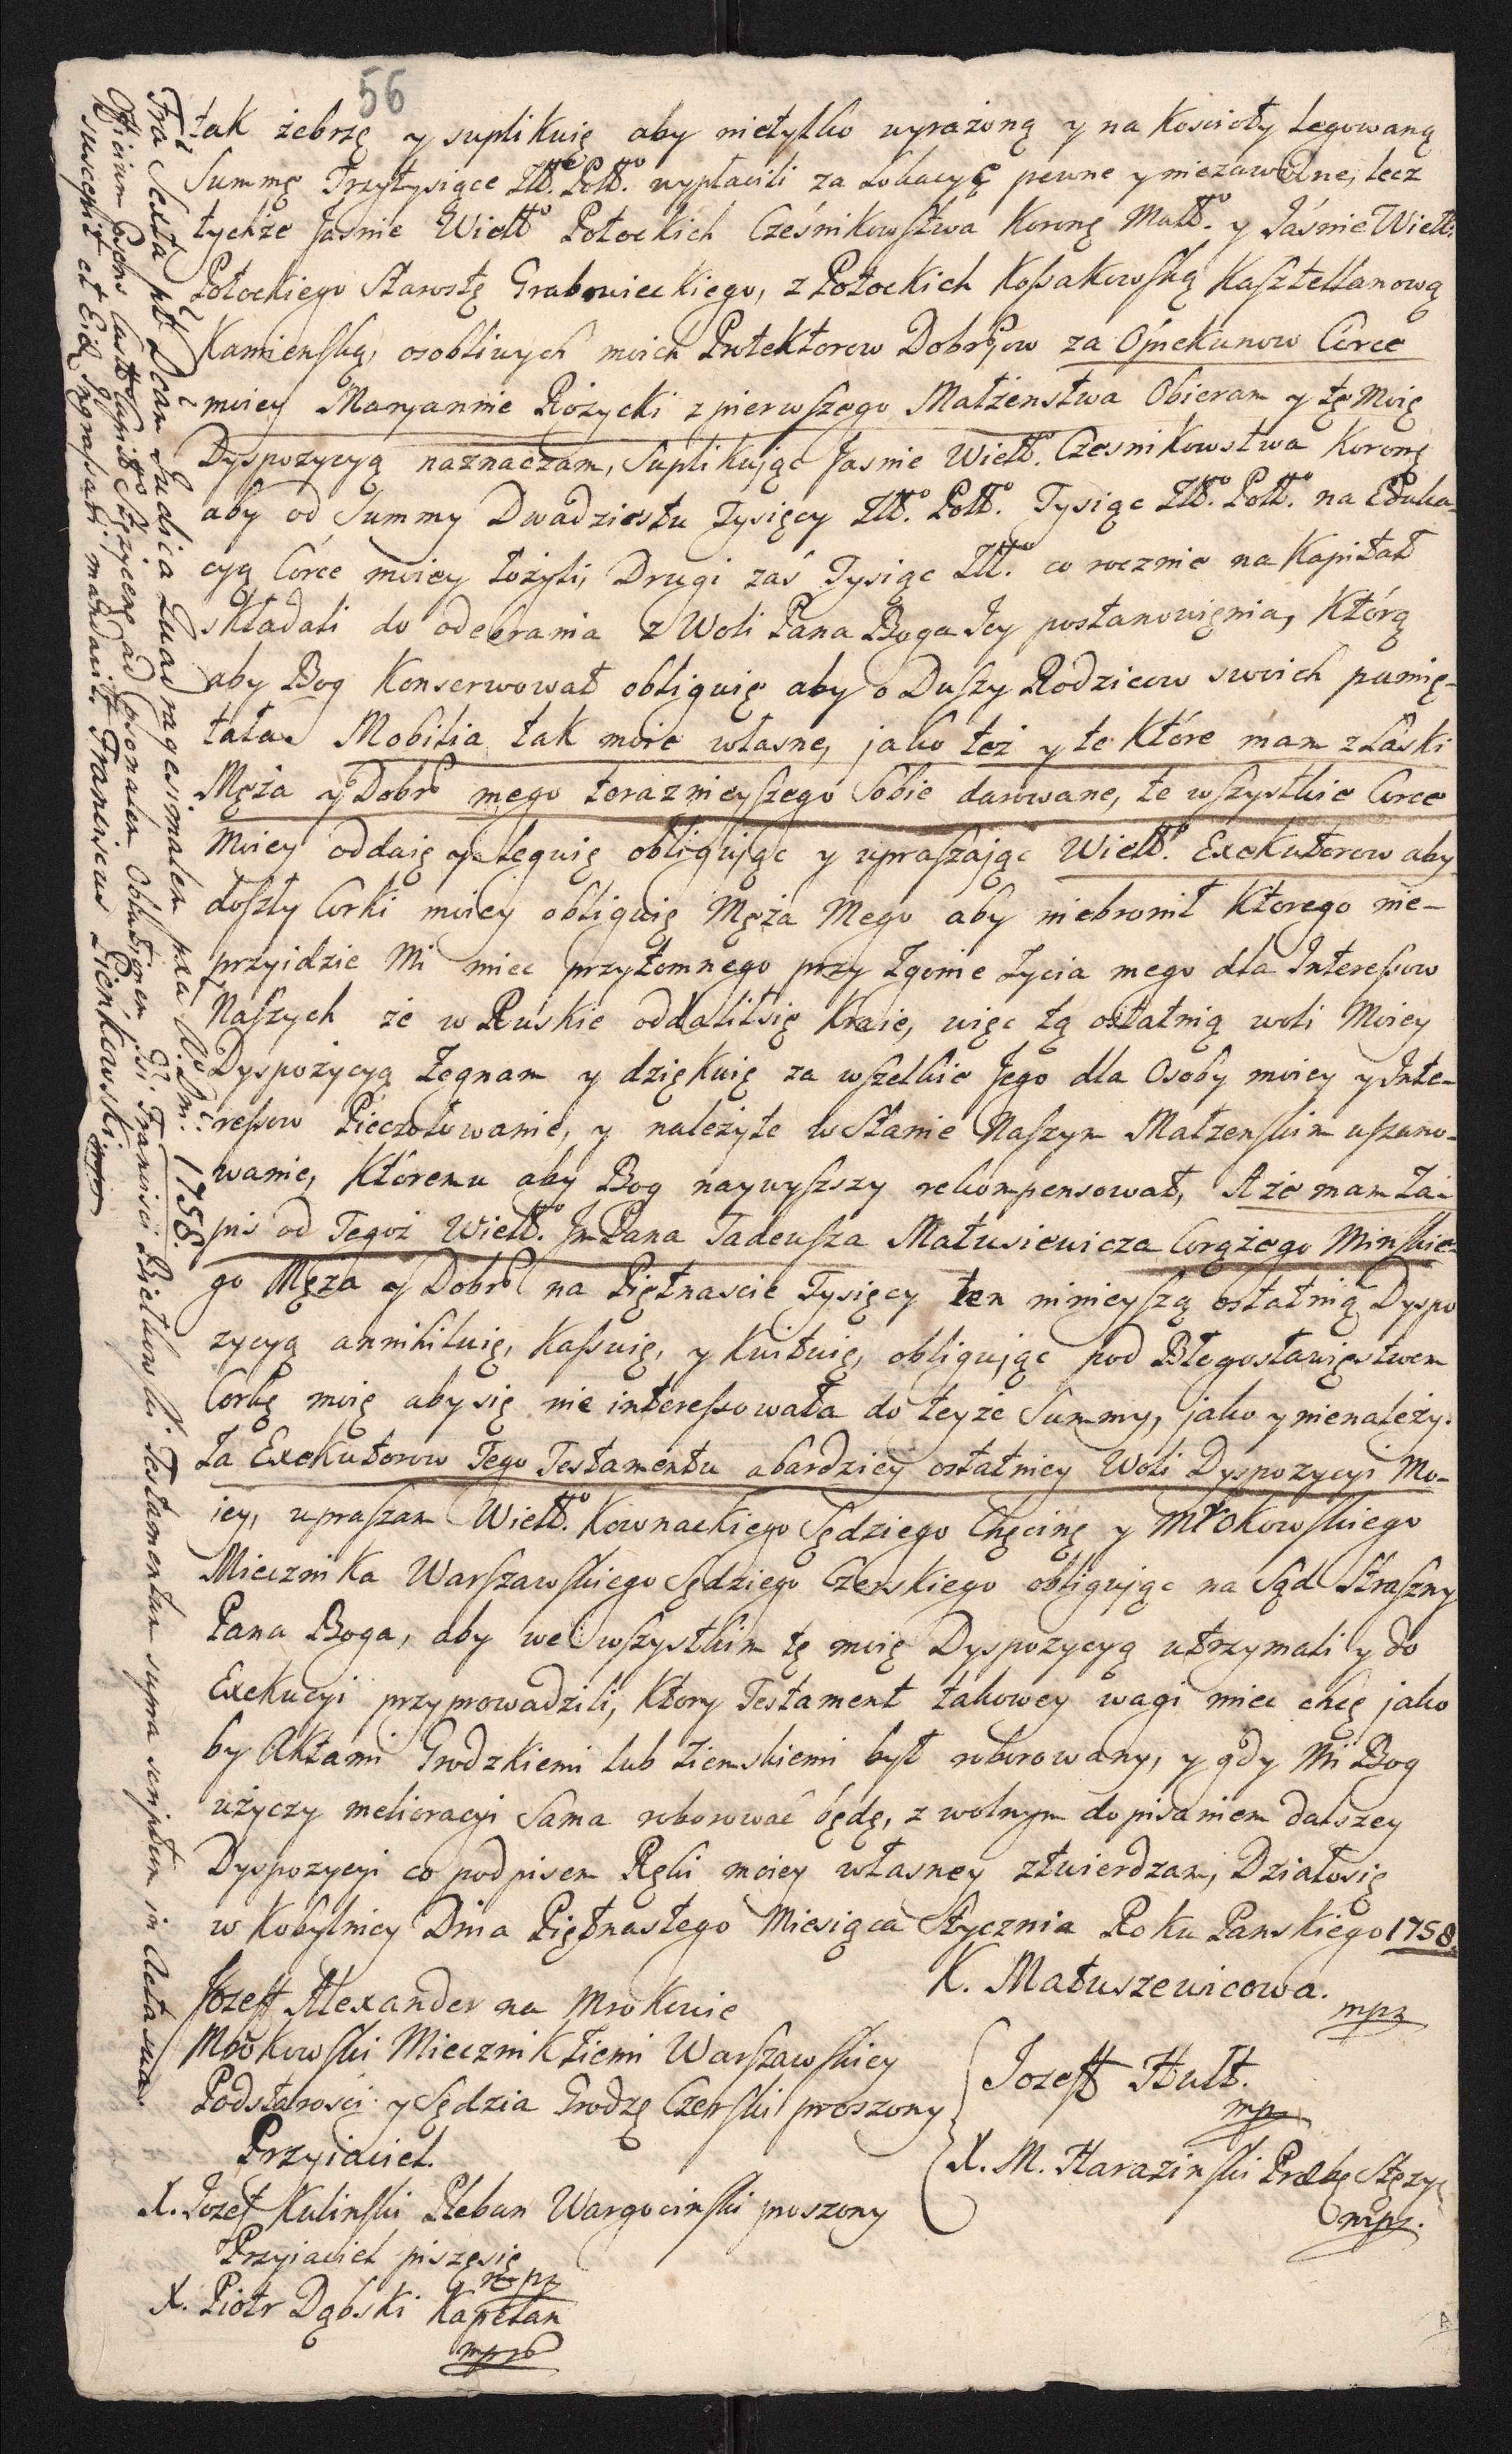 56
tak żebrzę y suplikuię aby nietylko wyrażoną y na Kościoły Legowaną
Summę Trzytysiące Złł. Poll. wypłacili za Lokacyę pewne y niezawodne, lecz
tychże Jasnie Wiell Potockich Cześnikowstwa Koronę Małł. y Jaśnie Wiell.
Potockiego Starostę Grabowieckiego, z Potockich Kossakowską Kasztellanową
Kamienską, osobliwych moich Protektorow Dobrjow za Opiekunow Corce
moiey Maryannie Rożycki z pierwszego Małżenstwa Obieram y tę Moię
Dyspozycyą naznaczam, Suplikując Jasnie Wiell. Czesnikowstwa Koronę
aby od Summy Dwadziestu Tysięcy Złł. Poll. Tysiąc Złł. Poll. na Eduka-
cyą Corce moiey łożyli, Drugi zaś Tysiąc Złł. co rocznie na Kapitał
składali do odebrania z Woli Pana Boga Jey postanowięnia, Którą
aby Bog Konserwował obliguię aby o Duszy Rodzicow swoich pamię-
tała. Mobilia tak moie własne, jako też y te Które mam z Łaski
Męża y Dobr mego teraznieyszego Sobie darowane, te wszystkie Corce
Moiey oddaię y Leguię obligując y upraszając Wiell. Exekutorow aby
doszły Corki moiey obliguię Męża Mego aby niebronił Ktorego nie-
przyidzie Mi miec przytomnego przy Zgonie Zycia mego dla Interessow
Naszych że w Ruskie oddalił się Kraie, więc tą ostatnią woli Moiey
Dyspozycyą Zegnam y dziękuię za wszelkie Jego dla Osoby moiey y Inte-
ressow Pieczołowanie, y należyte w Stanie Naszym Małzenskim uszano-
wanie, Któremu aby Bog naywyszszy rekompensował, Aże mam Za-
pis od Tegoż Wiell. Jm Pana Tadeusza Matusiewicza Corążego Minskie-
go Męża y Dobr na Piętnascie Tysięcy ten ninieyszą ostatnią Dyspo
zycyą annihiluię, Kassuię, y Kwituię, obligując pod Błogosławięstwem
Corkę moię aby się nie interessowała do teyże Summy, jako y nienależy.
Za Exekutorow Tego Testamentu a bardziey ostatniey Woli Dyspozycyi Mo-
iey, upraszam Wiell. Kownackiego Sędziego Chęcinę y Mrokowskiego
Miecznika Warszawskiego Sędziego Czerskiego obligując na Sąd Straszny
Pana Boga, aby we wszystkim tę moię Dyspozycyą utrzymali y do
Exekucyi przyprowadzili, Ktory Testament takowey wagi miec chcę jako
by Aktami Grodzkiemi lub Ziemskiemi był roborowany, y gdy Mi Bog
użyczy melioracyi Sama roborować będę, z wolnym dopisaniem dalszey
Dyspozycyi co podpisem Ręki moiey własney ztwierdzam, Działo się
w Kobylnicy Dnia Piętnastego Miesiąca Stycznia Roku Panskiego 1758.
K. Matuszewicowa.
mpz
Jozeff Alexander na Mrokowie
Mrokowski Miecznik Ziemi Warszawskiey
Podstarosci y Sędzia Grodzę Czerski proszony
Przyiaciel.
Jozeff Hult.
mpz
X. M. Harazinski Præbę Stęzyc
mpz.
X. Jozef Kulinski Pleban Wargocinski proszony
Przyiaciel piszę się
mpz
X. Piotr Dąbski Kapelan
mpz
Fra Sexta pst Dcam Judica Quadragesimalem pxa A. Dni. 1758.
Officium Psens Castr Capit Stęzycens ad psonalem Oblationem Gsi. Francisci Bielkowski. Testamentum supra scriptum in Acta sua
suscepit et Eisd Ingrossari mandavit. Franciscus Lienkowski mpr